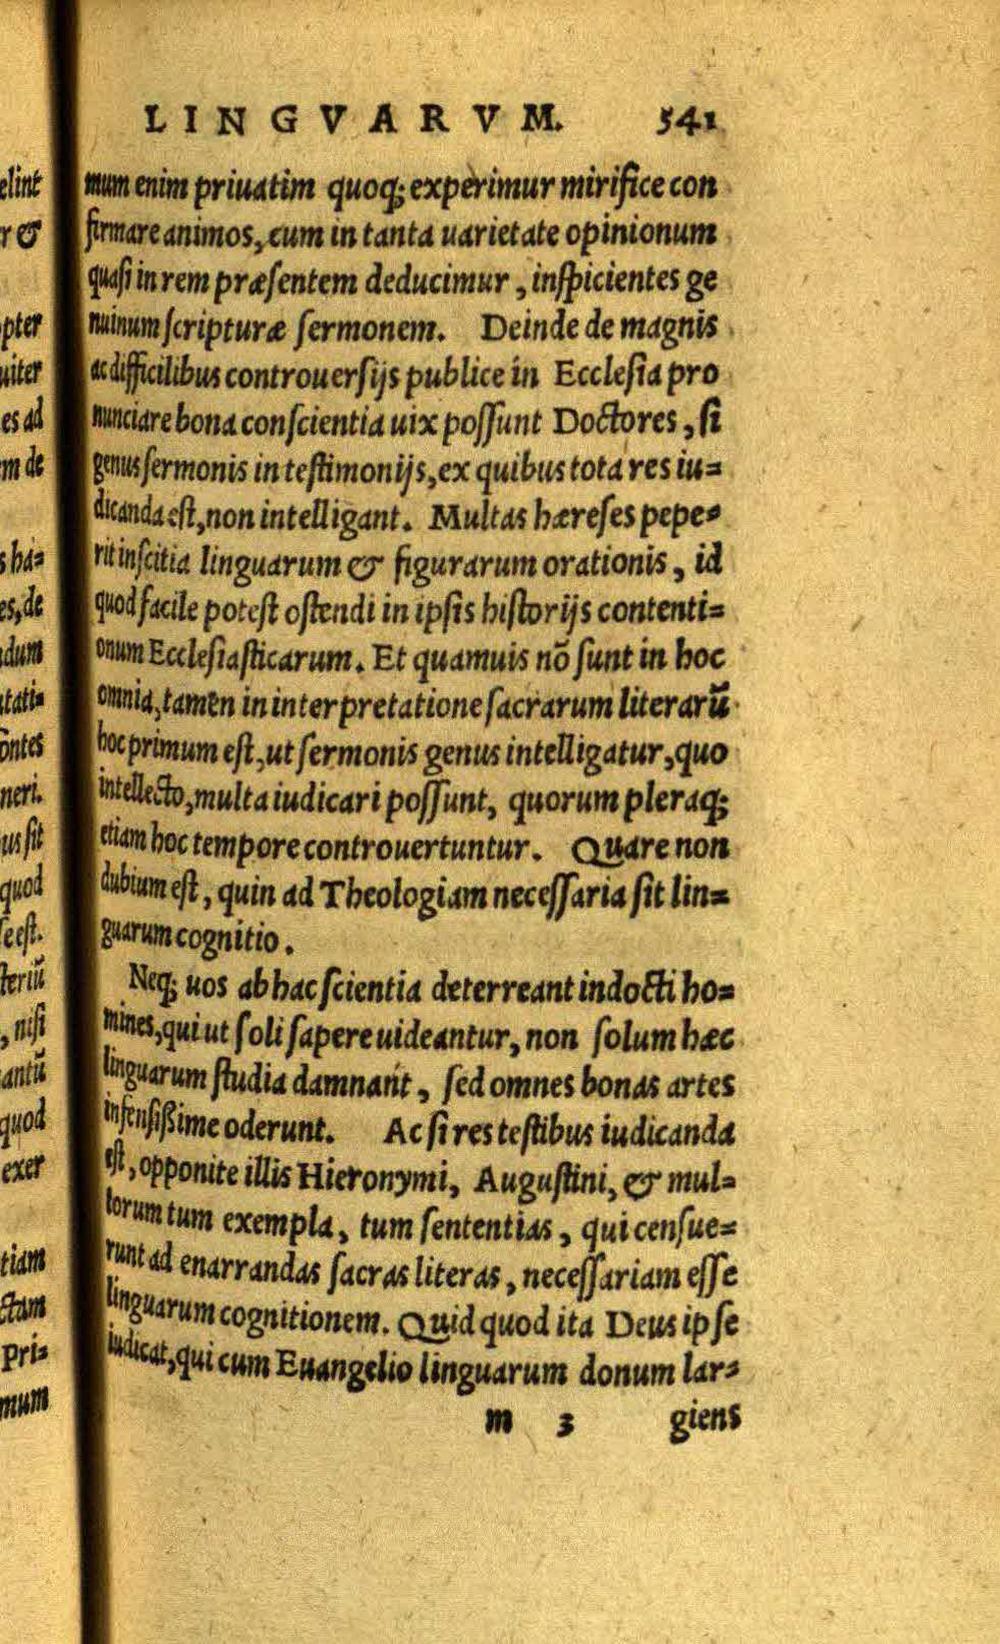 LINGVARVM. 541
mum enim priuatim quoq; experimur mirifice con
firmare animos, cum in tanta uarietate opinionum
quasi in rem præsentem deducimur, inspicientes ge
nuinum scripturæ sermonem. Deinde de magnis
ac difficilibus controuersijs publice in Ecclesia pro
nunciare bona conscientia uix possunt Doctores, si
genus sermonis in testimonijs, ex quibus tota res iu=
dicanda est, non intelligant. Multas hæreses pepe=
rit inscitia linguarum & figurarum orationis, id
quod facile potest ostendi in ipsis historijs contenti=
onum Ecclesiasticarum. Et quamuis nō sunt in hoc
omnia, tamen in interpretatione sacrarum literarū
hoc primum est, ut sermonis genus intelligatur, quo
intellecto, multa iudicari possunt, quorum pleraq;
etiam hoc tempore controuertuntur. Quare non
dubium est, quin ad Theologiam necessaria sit lin=
guarum cognitio.
Neq; uos ab hac scientia deterreant indocti ho=
mines, qui ut soli sapere uideantur, non solum hæc
linguarum studia damnant, sed omnes bonas artes
infensißime oderunt. Ac si res testibus iudicanda
est, opponite illis Hieronymi, Augustini, & mul=
torum tum exempla, tum sententias, qui censue=
runt ad enarrandas sacras literas, necessariam esse
linguarum cognitionem. Quid quod ita Deus ipse
iudicat, qui cum Euangelio linguarum donum lar=
m 3 giens
elint
r &
pter
uiter
es ad
m de
s ha=
es, de
dum
tati=
ōntes
neri.
us sit
quod
se est.
teriū
, nisi
antū
quod
exer
tiam
ctam
pri=
mum